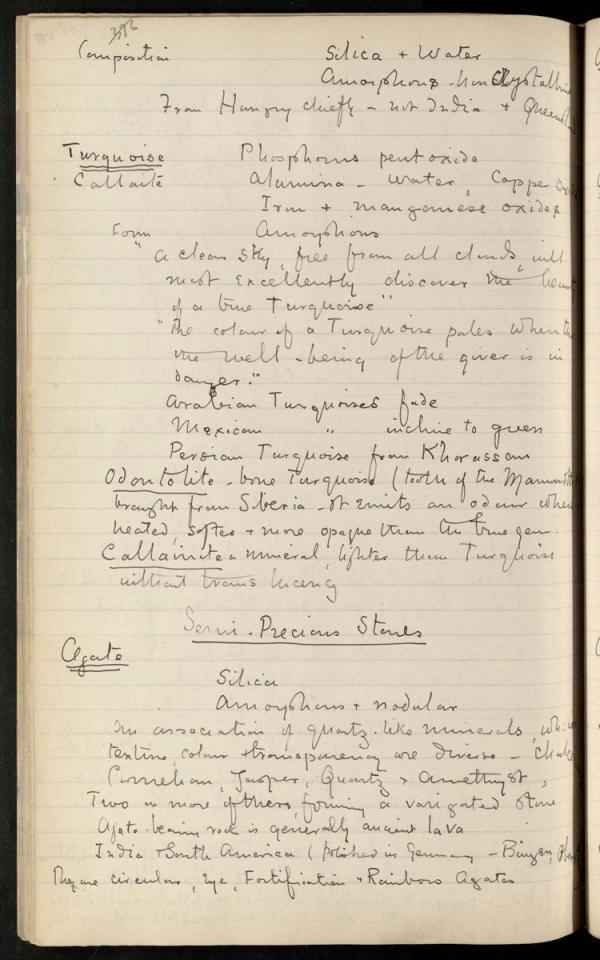 Composition Silica + Water
Amorphous - non Crystalline
From Hungry chiefly - not India + Queensl
Turquoise Phosphorus pentoxide
Callaite Alumina - Water, Copper Oxide
Iron + manganese oxides
Form Amorphous
"A clear sky, free from all clouds, will
most excellently discover the beau
of a true Turquoise"
"The colour of a Turquoise pales when th
the well-being of the giver is in
danger."
Arabian Turquoises fade
Mexican " incline to green
Persian Turquoise from Khorassan
Odontolite - bone Turquoise (tooth of the Mammoth
brought from Siberia - It emits an odour when
heated, softer + more opaque than the true gem.
Callainite a mineral, lighter than Turquoise
without translucency
Semi-Precious Stones
Agate
Silica
Amorphous + nodular
An association of quartz-like minerals, whi
texture, colour + transparency are diverse - Chalce
Cornelian, Jasper, Quartz + Amethyst,
Two or more of these, forming a varigated stone
Agate-bearing rock is generally ancient lava
India + South America (polished in Germany - Bingen, Ober
They are circular, Eye, Fortification + Rainbow Agates